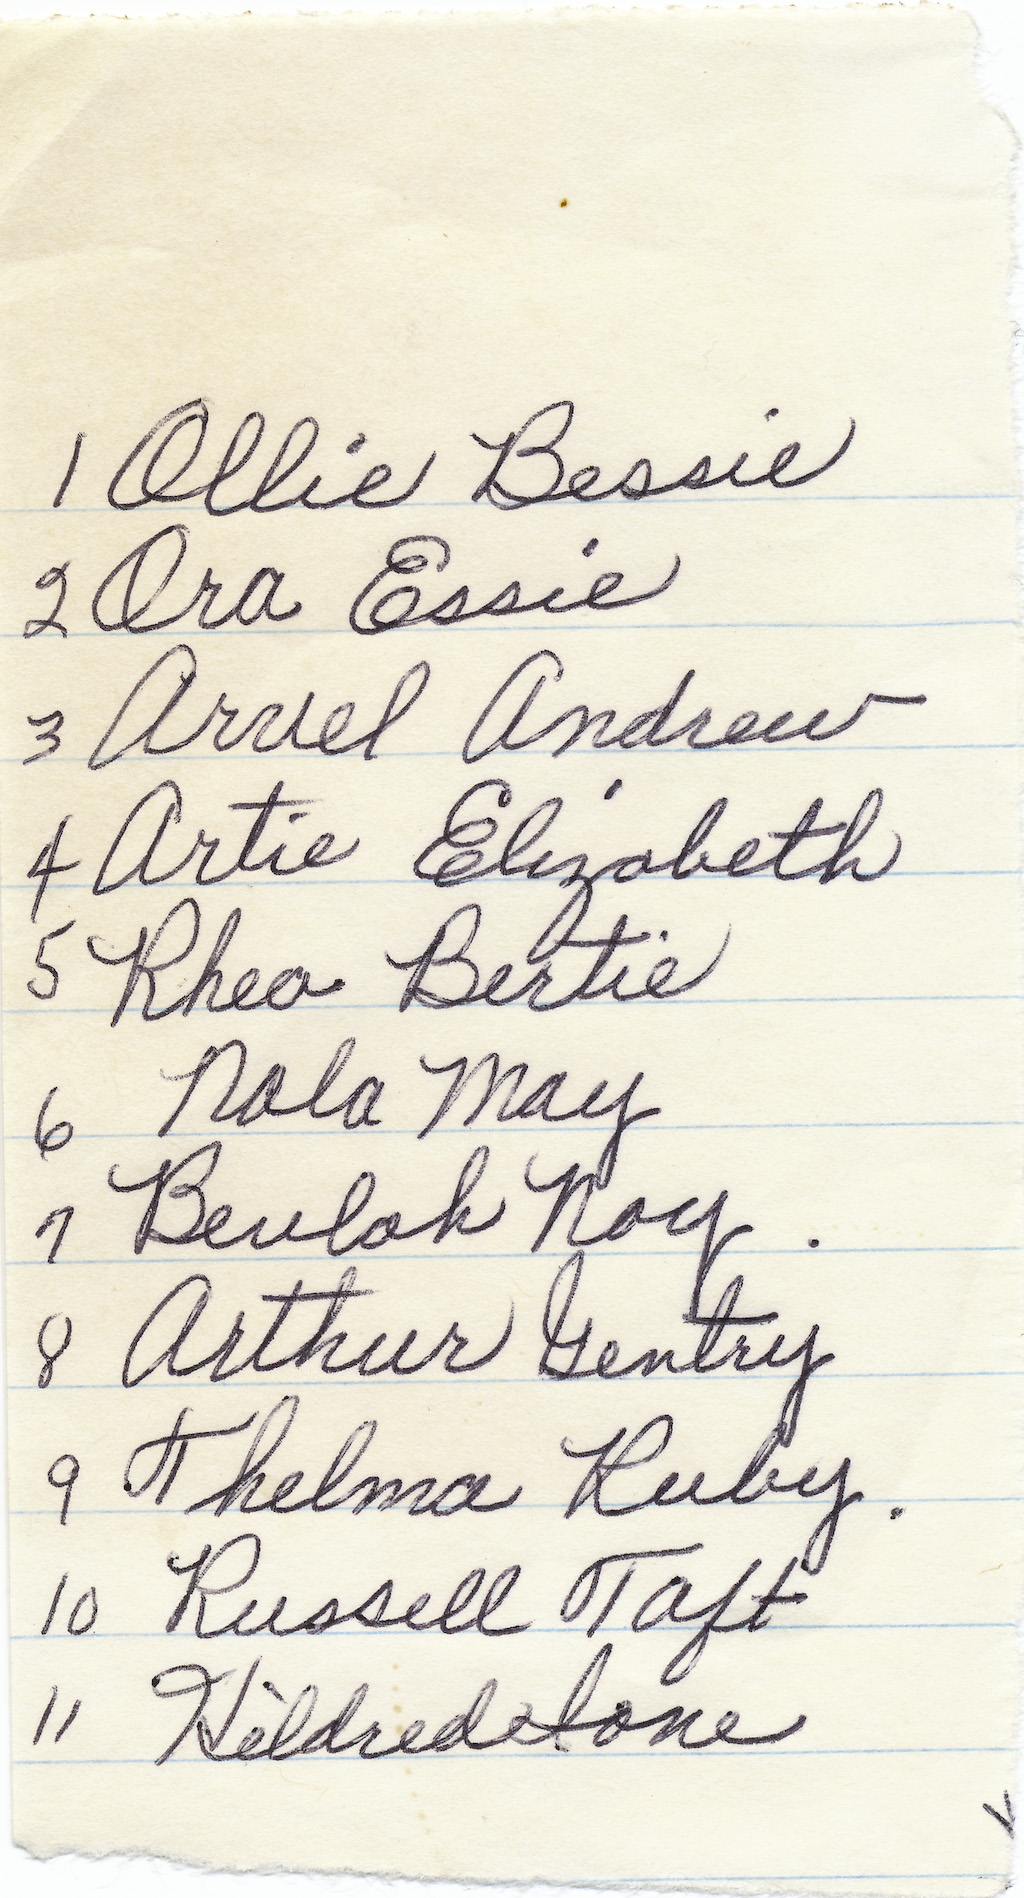 1 Ollie Bessie
2 Ora Essie
3 Arvel Andrew
4 Artie Elizabeth
5 Rhea Bertie
6 Nola May
7 Beulah Noy.
8 Arthur Gentry
9 Thelma Ruby.
10 Russell Taft
11 Hildred Ione